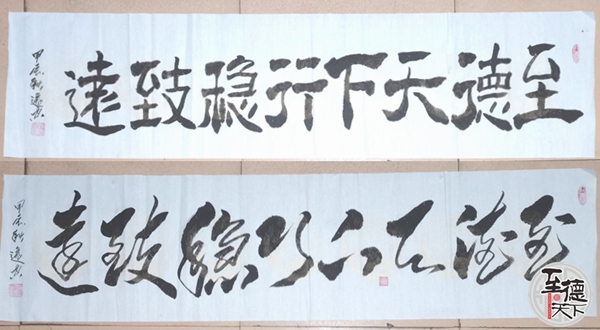 至德天下行稳致遠
甲辰秋
至德天下行稳致遠
甲辰秋
至德
天下